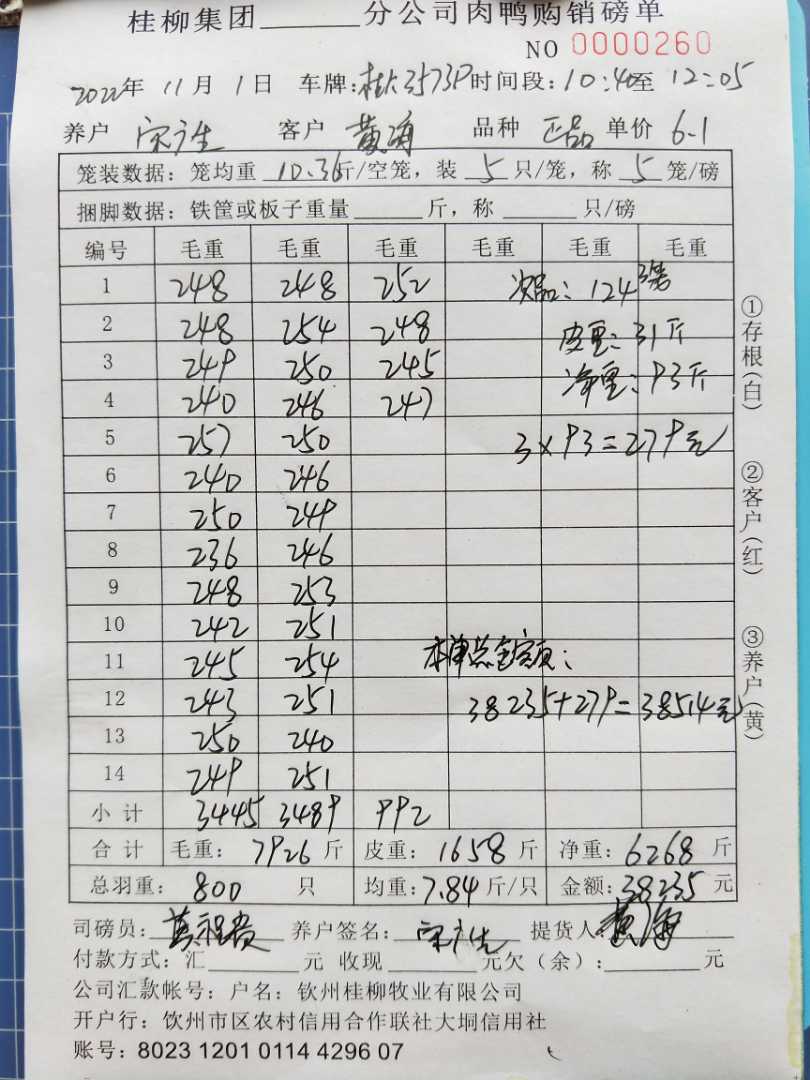 桂柳集团______分公司肉鸭购销磅单
NO 0000260
2022年 11月 1日 车牌:桂L3573P 时间段:10:40至 12:05
养户 宋广生 客户 黄海 品种 正品 单价 6.1
笼装数据:笼均重 10.36斤/空笼,装 5 只/笼,称 5 笼/磅
捆脚数据:铁筐或板子重量______斤,称______只/磅
编号 毛重 毛重 毛重 毛重 毛重 毛重
1 248 248 252 次品:124 3笼
2 248 254 248 皮重:31斤
3 249 250 245 净重:93斤
4 240 246 247
5 257 250 3×93=279元
6 240 246
7 250 249
8 236 246
9 248 253
10 242 251
11 245 254 本单总金额:
12 243 251 38235+279=38514元
13 250 240
14 249 251
小计 3445 3489 992
合计 毛重:7926斤 皮重:1658斤 净重:6268斤
总羽重:800 只 均重:7.84斤/只 金额:38235元
司磅员: 养户签名:宋广生 提货人:黄海
付款方式:汇______元 收现______元欠(余):______元
公司汇款帐号:户名:钦州桂柳牧业有限公司
开户行:饮州市区农村信用合作联社大垌信用社
账号:8023 1201 0114 4296 07
①存根(白) ②客户(红) ③养户(黄)